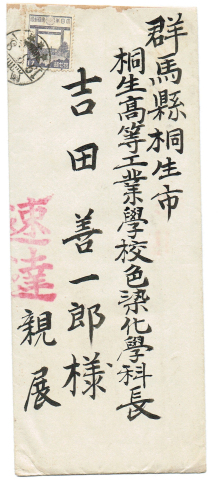 群馬縣桐生市
桐生高等工業學校色染化學科長
吉田善一郎様
親展
速達